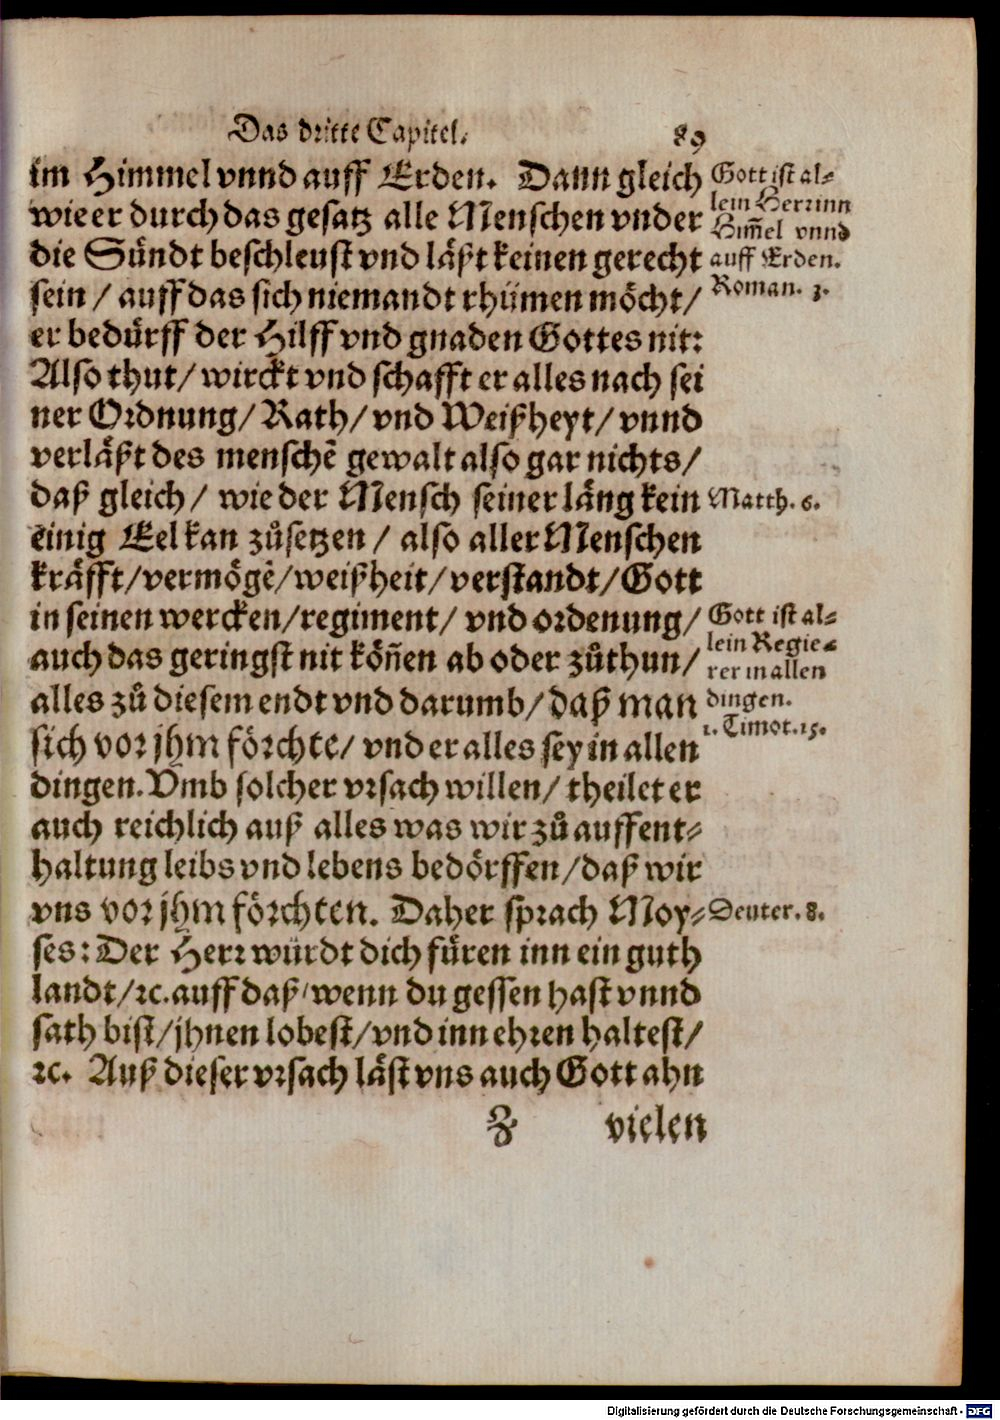 Das dritte Capitel.
89
im Himmel vnnd auff Erden. Dann gleich
wie er durch das gesatz alle Menschen vnder
die Sündt beschleust vnd läßt keinen gerecht
sein / auff das sich niemandt rhümen möcht /
er bedürff der Hilff vnd gnaden Gottes nit:
Also thut / wirckt vnd schafft er alles nach sei
ner Ordnung / Rath / vnd Weißheyt / vnnd
verläßt des menschē gewalt also gar nichts /
daß gleich / wie der Mensch seiner läng kein
einig Eel kan zůsetzen / also aller Menschen
kräfft / vermögē / weißheit / verstandt / Gott
in seinen wercken / regiment / vnd ordenung /
auch das geringst nit köñen ab oder zůthun /
alles zů diesem endt vnd darumb / daß man
sich vor jhm förchte / vnd er alles sey in allen
dingen. Vmb solcher vrsach willen / theilet er
auch reichlich auß alles was wir zů auffent⸗
haltung leibs vnd lebens bedörffen / daß wir
vns vor jhm förchten. Daher sprach Moy⸗
ses: Der Herr würdt dich füren inn ein guth
landt / ꝛc. auff daß / wenn du gessen hast vnnd
sath bist / jhnen lobest / vnd inn ehren haltest /
ꝛc. Auß dieser vrsach läst vns auch Gott ahn
Z vielen
Gott ist al⸗
lein Herr inn
Him̄el vnnd
auff Erden.
Roman. 3.
Matth. 6.
Gott ist al⸗
lein Regie⸗
rer in allen
dingen.
1. Timot. 15.
Deuter. 8.
Digitalisierung gefördert durch die Deutsche Forschungsgemeinschaft - DFG